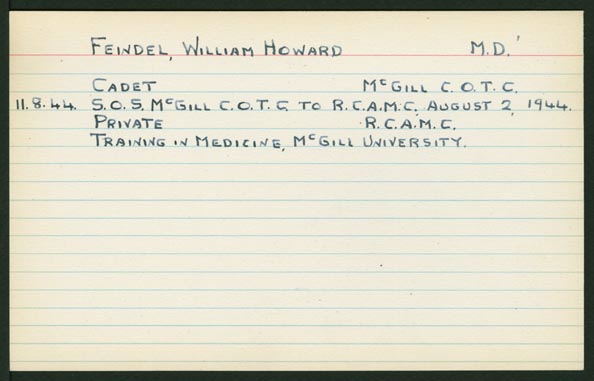 FEINDEL, WILLIAM HOWARD M.D.'
CADET McGILL C.O.T.C.
11.8.44. S.O.S. McGILL C.O.T.C. TO R.C.A.M.C. AUGUST 2, 1944.
PRIVATE R.C.A.M.C.
TRAINING IN MEDICINE, McGILL UNIVERSITY.